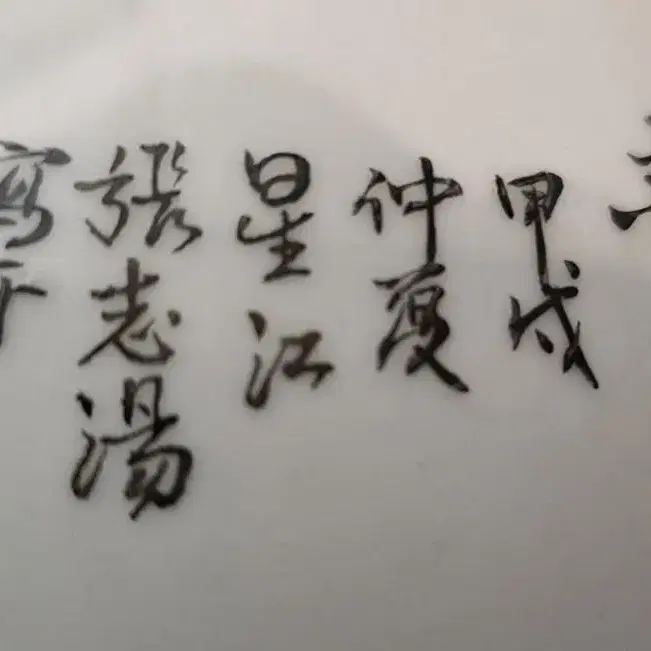 甲戌
仲夏
星江
張志湯
寫于